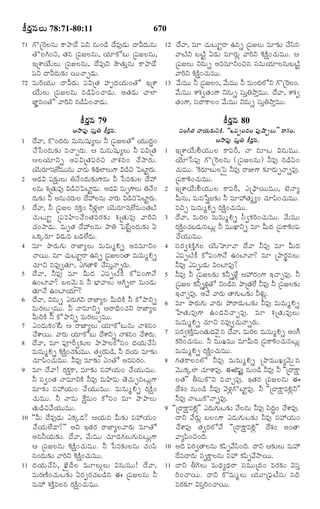 కీర్తనలు 78:71-80:11
670
71 గొర్రెలను కాపాడే పని నుండి దేవుడు దావీదును
తొలగించి, తన ప్రజలను, యాకోబు ప్రజలను,
ఇశ్రాయేలు ప్రజలను, దేవుని సొత్తును కాపాడే
పని దావీదుకు యిచ్చాడు.
72 మరియు దావీదు పవిత్ర హృదయంతో ఇశ్రా
యేలు ప్రజలను నడిపించాడు. అతడు చాలా
జ్ఞానంతో వారిని నడిపించాడు.
కీర్తన 79
ఆసాపు స్తుతి కీర్తన.
1 దేవా, కొందరు మనుష్యులు నీ ప్రజలతో యుద్ధం
చేసేందుకు వచ్చారు. ఆ మనుష్యులు నీ పవిత్ర
ఆలయాన్ని అపవిత్రపరచి నాశనం చేసారు.
యెరూషలేమును వారు శిథిలాలుగా విడిచి పెట్టారు.
2 అడవి పక్షులు తినేందుకుగాను నీ సేవకుల దేహా
లను శత్రువు విడిచిపెట్టాడు. అడవి మృగాలు తినేం
దుకు నీ అనుచరుల దేహాలను వారు విడిచిపెట్టారు.
3 దేవా, నీ ప్రజల రక్తం నీళ్లలా యెరూషలేమంతటి
చుట్టూ ప్రవహించేంతవరకు శత్రువు వారిని
చంపాడు. మృత దేహాలను పాతి పెట్టేందుకు ఏ
ఒక్కరూ విడువ బడలేదు.
4 మా పొరుగు రాజ్యాలు మమ్మల్ని అవమానించ
చాయి. మా చుట్టూరా ఉన్న ప్రజలంతా మమ్మల్ని
చూచి నవ్వుతూ, ఎగతాళి చేస్తున్నారు.
5 దేవా, నీవు మా మీద ఎప్పటికీ కోపంగానే
ఉంటావా? బలమైన నీ భావాలు అగ్నిలా మండు
తూనే ఉంటాయా?
6 దేవా, నిన్ను ఎరుగని రాజ్యాల మీదికి నీ కోపాన్ని
మరల్చుము. నీ నామాన్ని ఆరాధించని రాజ్యాల
మీదికి నీ కోపాన్ని మరల్చుము.
7 ఎందుకంటే ఆ రాజ్యాలు యాకోబును నాశనం
చేశాయి. వారు యాకోబు దేశాన్ని నాశనం చేశారు.
8 దేవా, మా పూర్వీకుల పాపాలకోసం దయచేసి
మమ్మల్ని శిక్షించవద్దు. త్వరపడి, నీ దయ మాకు
చూపించుము. నీవు మాకు ఎంతో అవసరం.
9 మా దేవా! రక్షకా, మాకు సహాయం చేయుము.
నీ స్వంత నామానికి నీవు మహిమ తెచ్చుకొనునట్లుగా
మాకు సహాయం చేయుము. మమ్మల్ని రక్షిం
చుము. నీ నామ క్షేమం కోసం మా పాపాలు
తుడిచివేయుము.
10 "మీ దేవుడు ఎక్కడ? ఆయన మీకు సహాయం
చేయలేడా?" అని ఇతర రాజ్యాలవారు మాతో
అననీయకు. దేవా, మేము చూడగలుగునట్లుగా
ఆ ప్రజలను శిక్షించుము. నీ సేవకులను చంపి
నందుకు వారిని శిక్షించుము.
11 దయచేసి, ఖైదీల మూల్గులు వినుము! దేవా,
మరణించుటకు ఏర్పరచబడిన ఈ ప్రజలను నీ
మహా శక్తివలన రక్షించుము.
12 దేవా, మా చుట్టూరా ఉన్న ప్రజలు మాకు చేసిన
వాటిని బట్టి ఏడు మార్లు వారిని శిక్షించుము. ఆ
ప్రజలు నిన్ను అవమానించిన సమయాలనుబట్టి
వారిని శిక్షించుము.
13 మేము నీ ప్రజలం, మేము నీ మందలోని గొర్రెలం.
మేము శాశ్వతంగా నిన్ను స్తుతిస్తాము. దేవా, శాశ్వ
తంగా, సదాకాలం మేము నిన్ను స్తుతిస్తాము.
కీర్తన 80
సంగీత నాయకునికి, "ఒప్పందపు పుష్పాలు" రాగం.
ఆసాపు స్తుతి కీర్తన.
1 ఇశ్రాయేలీయుల కాపరీ, నా మాట వినుము.
యోసేపు గొర్రెలను (ప్రజలను) నీవు నడిపించ
చుము. కెరూబులపై నీవు రాజుగా కూర్చున్నావు.
ప్రకాశించుము.
2 ఇశ్రాయేలీయుల కాపరీ, ఎఫ్రాయిము, బెన్యా
మీను, మనష్షేలకు నీ మాహాత్మ్యం చూపించుము.
వచ్చి మమ్మల్ని రక్షించుము.
3 దేవా, మరల మమ్మల్ని స్వీకరించుము. మేము
రక్షించబడునట్లు నీ ముఖాన్ని మా మీద ప్రకాశింప
చేయుము.
4 సర్వశక్తిగల యెహోవా దేవా నీవు మా మీద
ఎప్పటికీ కోపంగానే ఉంటావా? మా ప్రార్థనలు
నీవు ఎప్పుడు వింటావు?
5 నీవు నీ ప్రజలకు కన్నీళ్లే ఆహారంగా ఇచ్చావు. నీ
ప్రజల కన్నీళ్లతో నిండిన పాత్రలే నీవు నీ ప్రజలకు
ఇచ్చావు. అవే వారు తాగుటకు నీళ్లు.
6 మా పొరుగు వారు పోరాడుటకు నీవు మమ్మల్ని
హేతువుగా ఉండనిచ్చావు. మా శత్రువులు
మమ్మల్ని చూచి నవ్వుచున్నారు.
7 సర్వశక్తిమంతుడవైన దేవా, మరల మమ్మల్ని అంగీ
కరించుము. నీ ముఖము మామీద ప్రకాశించునట్లు
మమ్మల్ని రక్షించుము.
8 గతకాలంలో నీవు మమ్మల్ని ప్రాముఖ్యమైన
మొక్కలా చూశావు. ఈజిప్టు నుండి నీవు నీ "ద్రాక్షా
వల్లి" తీసుకొని వచ్చావు. ఇతర ప్రజలను ఈ
దేశం నుండి నీవు వెళ్లగొట్టావు. నీ "ద్రాక్షావల్లిని"
నీవు నాటుకొన్నావు.
9 "ద్రాక్షావల్లి" ఎదుగుటకు నేలను నీవు సిద్ధం చేశావు.
దాని వేర్లు బలంగా ఎదుగుటకు నీవు సహాయం
చేశావు త్వరలోనే "ద్రాక్షావల్లి" దేశం అంతా
వ్యాపించింది.
10 అది పర్వతాలను కప్పివేసింది. దాని ఆకులు మహా
దేవదారు వృక్షాలను సహా కప్పివేసాయి.
11 దాని తీగెలు మధ్యధరా సముద్రం వరకు విస్త
రించాయి. దాని కొమ్మలు యూఫ్రటీసు నది
వరకూ విస్తరించాయి.